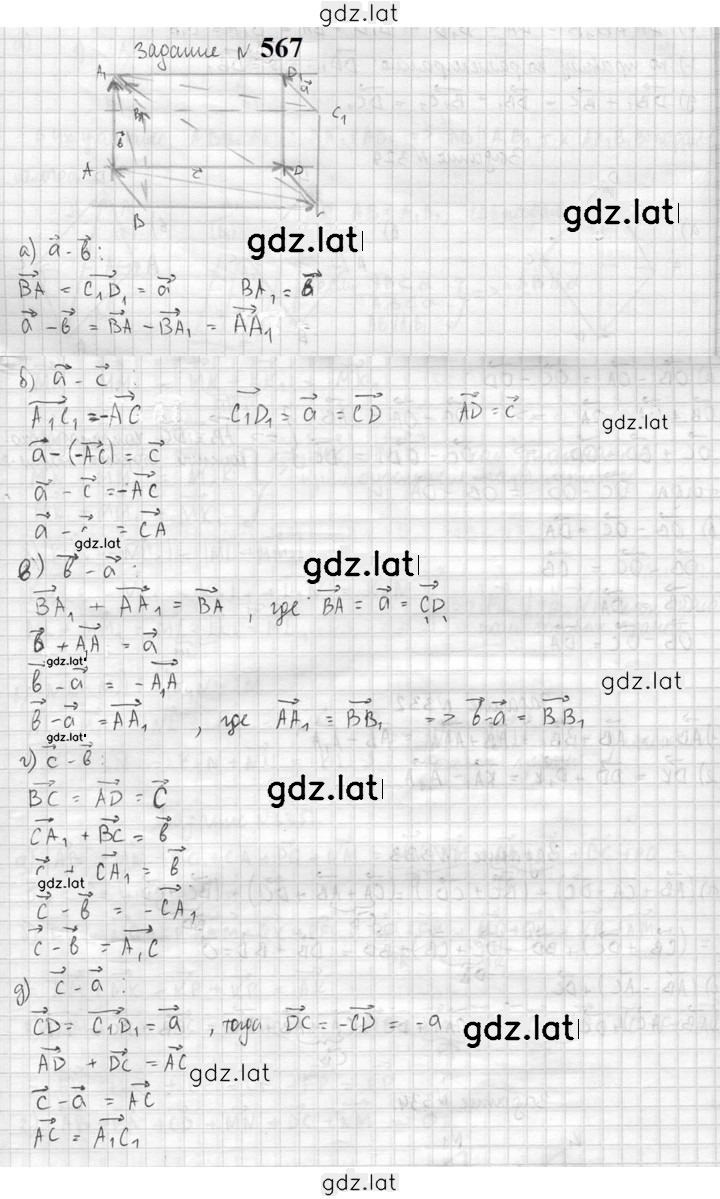 gdz.lat
Задание № 567
A₁ D₁ a⃗
B₁ C₁
b⃗
A c⃗ D
B C
gdz.lat
gdz.lat
а) a⃗ - b⃗ :
BA⃗ = C₁D₁⃗ = a⃗ BA₁⃗ = b⃗
a⃗ - b⃗ = BA⃗ - BA₁⃗ = AA₁⃗
б) a⃗ - c⃗ :
A₁C₁⃗ = -AC⃗ C₁D₁⃗ = a⃗ = CD⃗ AD⃗ = c⃗
gdz.lat
a⃗ - (-AC⃗) = c⃗
a⃗ - c⃗ = -AC⃗
a⃗ - = CA⃗
gdz.lat
в) b⃗ - a⃗ :
gdz.lat
BA₁⃗ + AA₁⃗ = BA⃗ , где BA⃗ = a⃗ = CD⃗
b⃗ + A₁A⃗ = a⃗
gdz.lat
b⃗ - a⃗ = -A₁A⃗
gdz.lat
b⃗ - a⃗ = AA₁⃗ , где AA₁⃗ = BB₁⃗ => b⃗ - a⃗ = BB₁⃗
gdz.lat
г) c⃗ - b⃗ :
BC⃗ = AD⃗ = c⃗
gdz.lat
CA₁⃗ + BC⃗ = b⃗
CA₁⃗ = b⃗
gdz.lat
c⃗ - b⃗ = -CA₁⃗
c⃗ - b⃗ = A₁C⃗
д) c⃗ - a⃗ :
CD⃗ = C₁D₁⃗ = a⃗ , тогда DC⃗ = -CD⃗ = -a
gdz.lat
AD⃗ + DC⃗ = AC⃗
gdz.lat
c⃗ - a⃗ = AC⃗
AC⃗ = A₁C₁⃗
gdz.lat